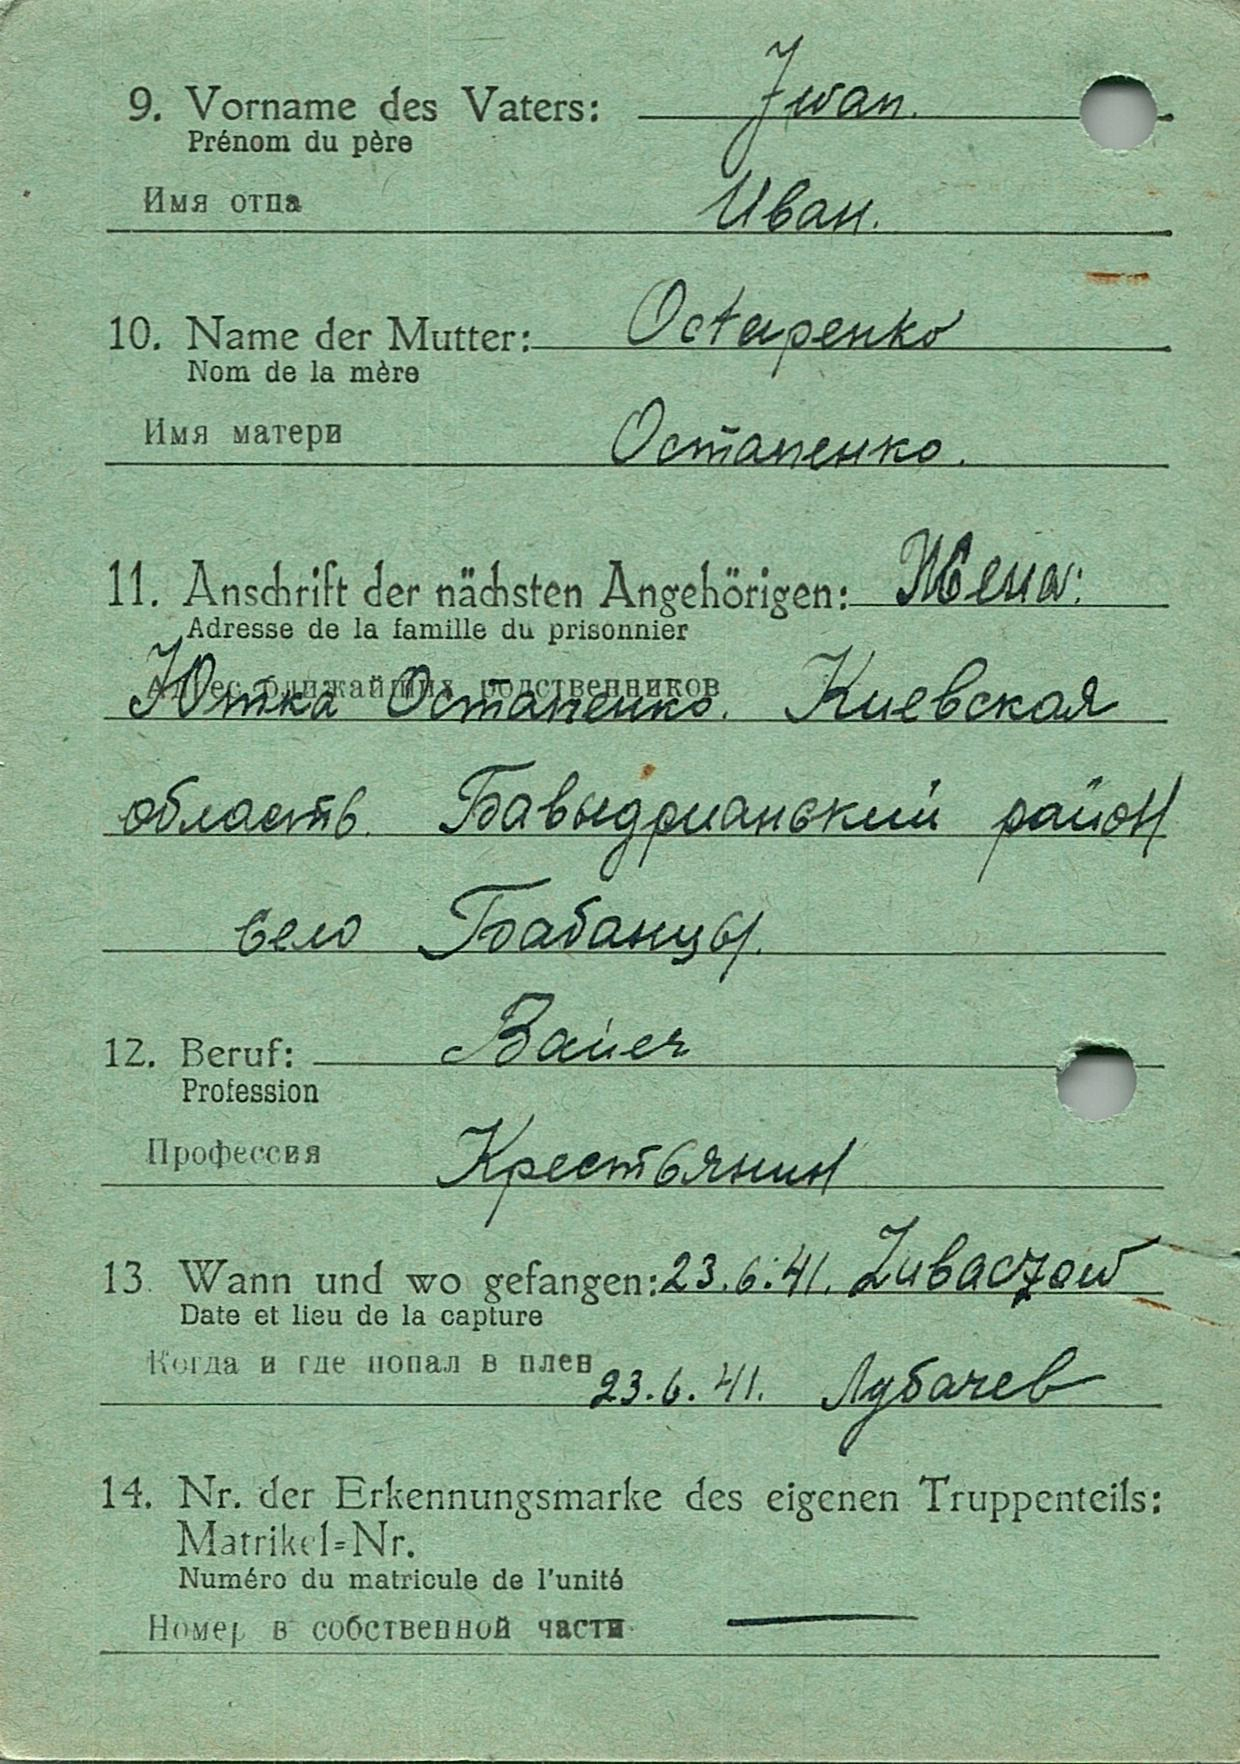 9. Vorname des Vaters: Iwan.
Prénom du père
Имя отца Иван.
10. Name der Mutter: Ostapenko
Nom de la mère
Имя матери Остапенко.
11. Anschrift der nächsten Angehörigen: Жена:
Adresse de la famille du prisonnier
Адрес ближайших родственников
Ютка Остапенко. Киевская
область. Бавыдрианский район
село Бабанцы.
12. Beruf: Bauer
Profession
Профессия Крестьянин
13. Wann und wo gefangen: 23.6.41. Lubaczow
Date et lieu de la capture
Когда и где попал в плен 23.6.41. Лубачев
14. Nr. der Erkennungsmarke des eigenen Truppenteils:
Matrikel=Nr.
Numéro du matricule de l'unité
Номер в собственной части —